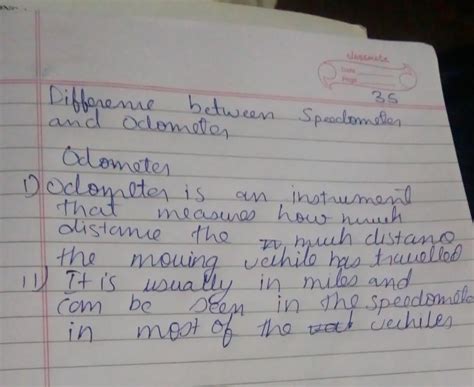 classmate
Date
Page
35
Difference between Speedometer
and Odometer
Odometer
i) Odometer is an instrument
that measures how much
distance the much distanc
the moving vechile has travelled
ii) It is usually in miles and
com be seen in the speedomete
in most of the vechiles